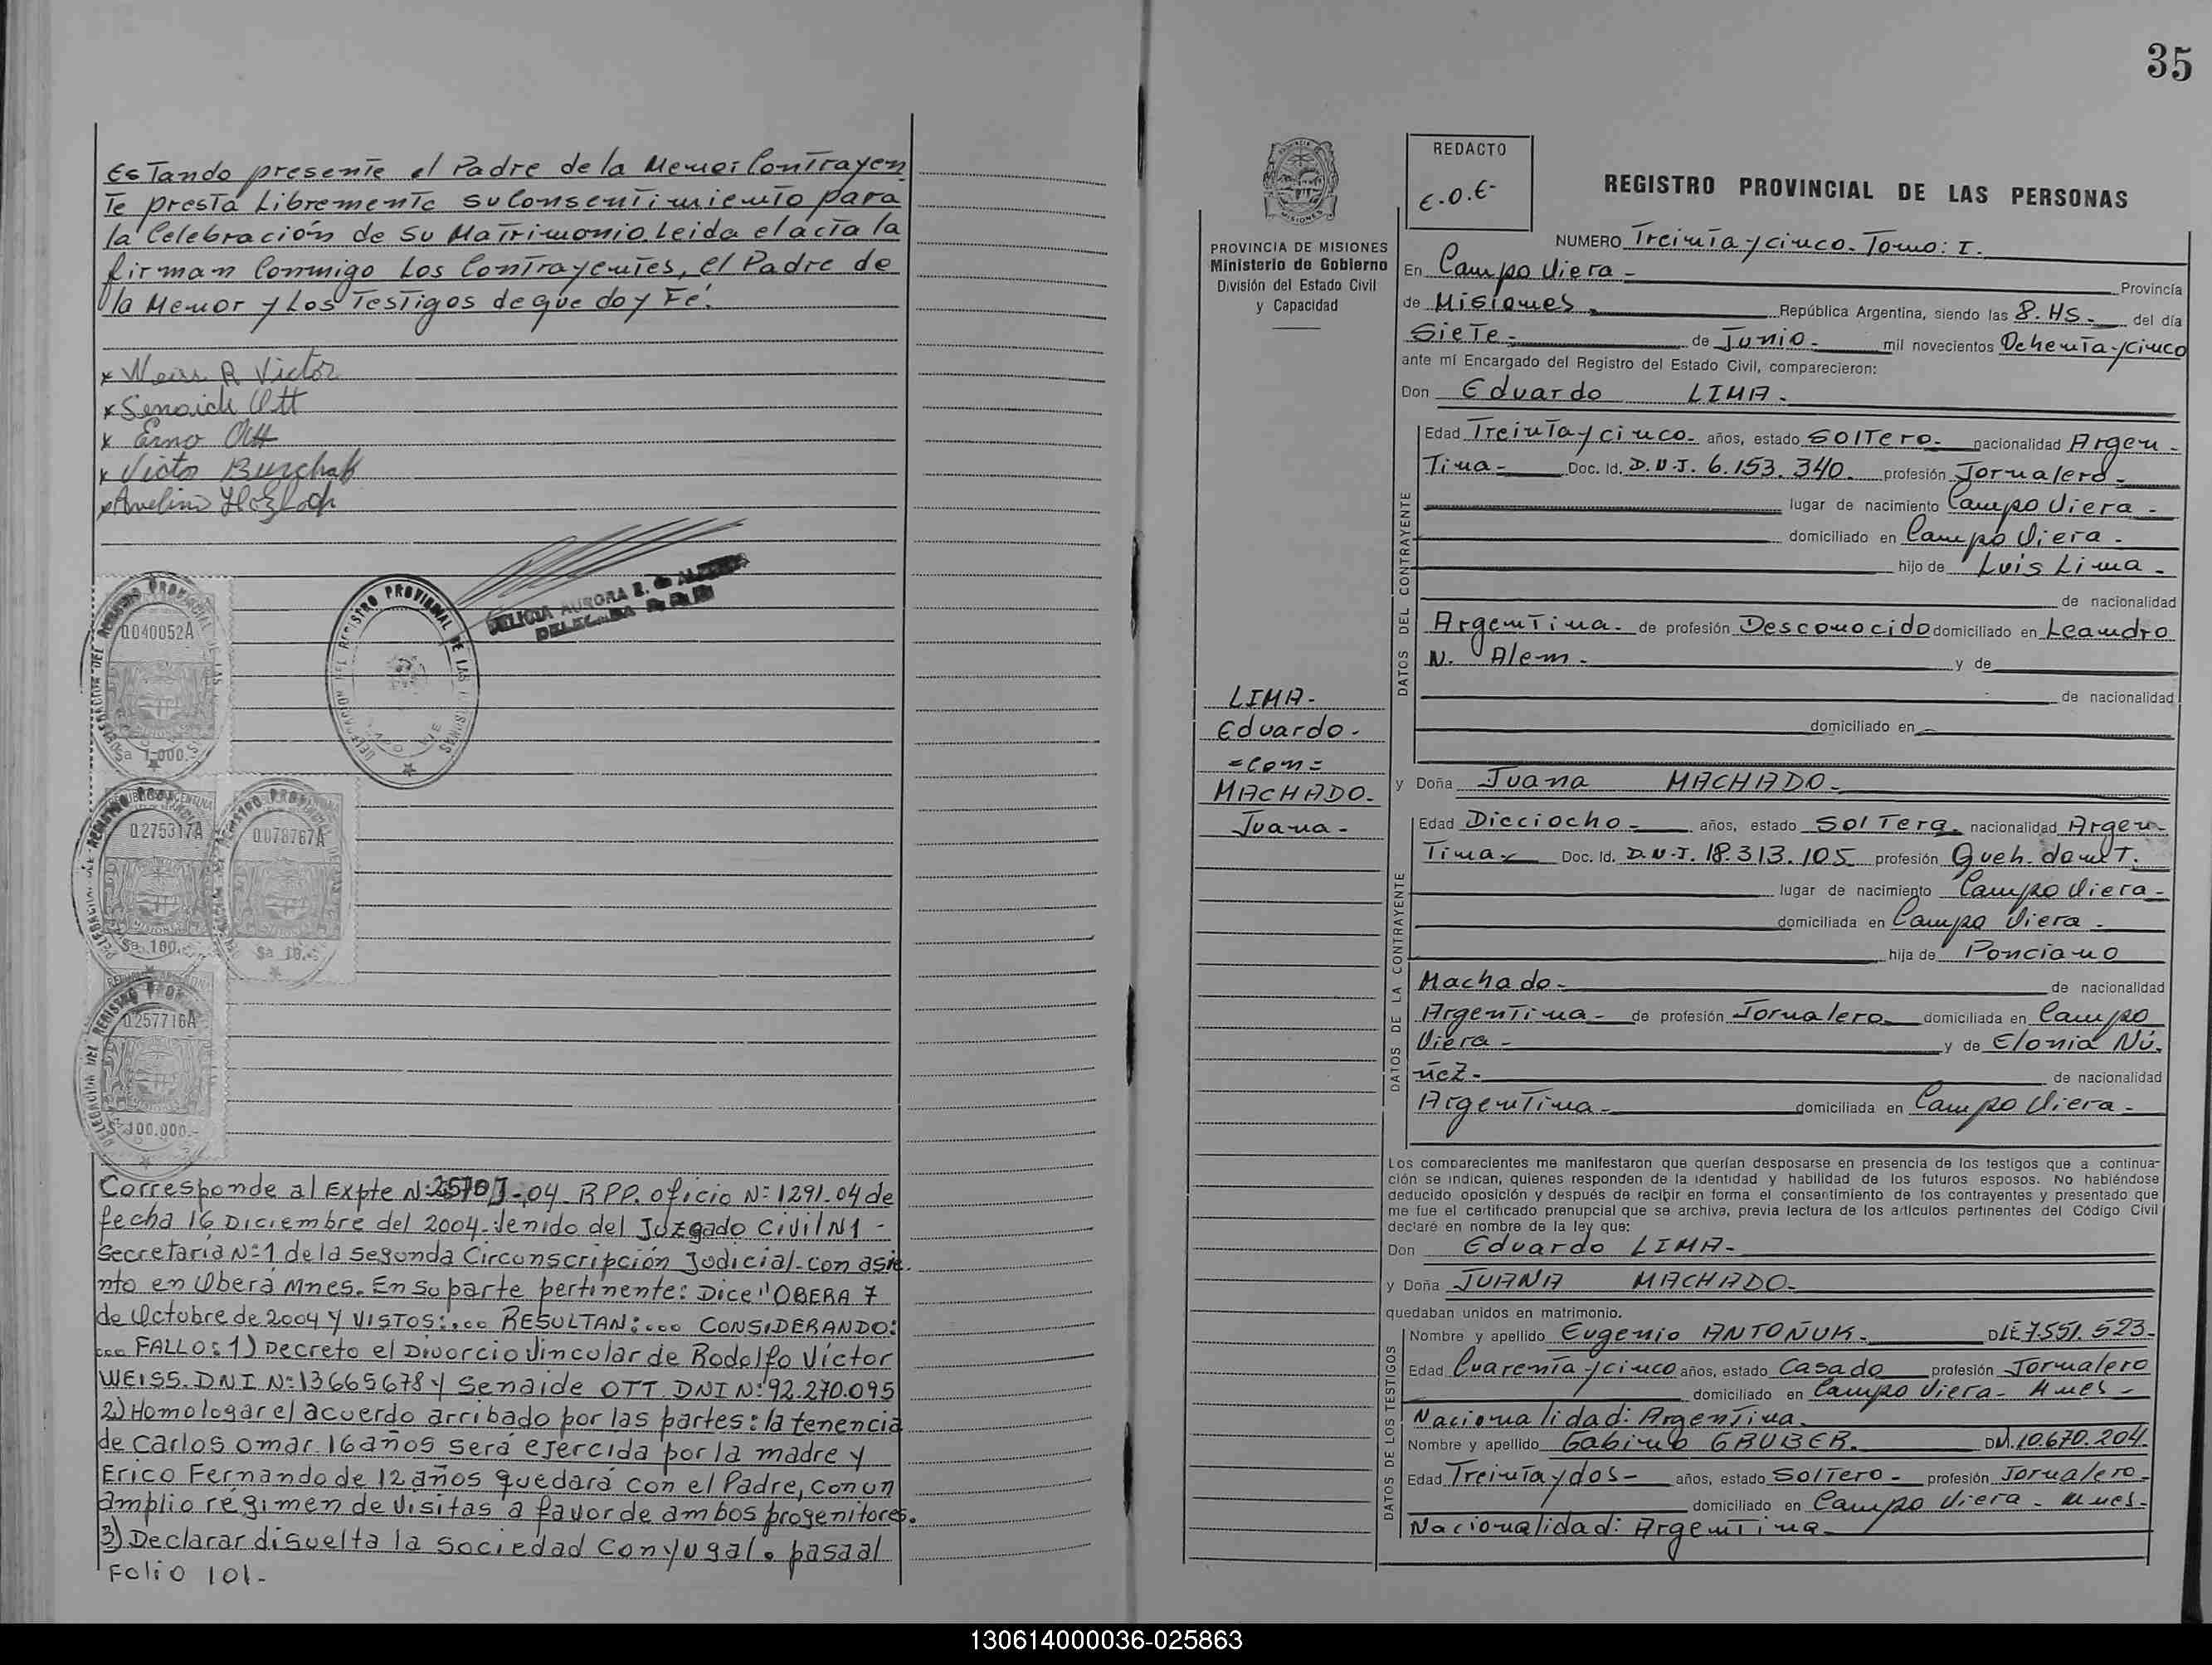 Estando presente el Padre de la Menor Contrayen
Te presta Libremente su Consentimiento para
la Celebración de su Matrimonio. Leida el acta la
firman Conmigo Los Contrayentes, el Padre de
la Menor y Los Testigos de que doy Fé.
x Weiss R Victor
x Senaide Ott
x Erno Ott
x Victo Burchak
x Avelino
DELEGACION DEL REGISTRO PROVINCIAL DE LAS PERSONAS
DELICIA AURORA E. de
DELEGADA
0.040052A
$a 1.000.-
0.275317A
0.078767A
$a 100.-
$a 10.-
0.257716A
$ 100.000.-
Corresponde al Expte N: J-04- RPP. oficio N: 1291-04 de
fecha 16 Diciembre del 2004- Venido del Juzgado Civil N1 -
Secretaria N:1 de la Segunda Circunscripción Judicial- con asie
nto en Oberá Mnes. En su parte pertinente: Dice " OBERA 7
de Octubre de 2004 Y VISTOS:... RESULTAN:... CONSIDERANDO:
... FALLO: 1) Decreto el Divorcio Vincular de Rodolfo Víctor
WEISS. DNI N: 13665678 y Senaide OTT DNI N: 92.270.095
2) Homologar el acuerdo arribado por las partes: la tenencia
de Carlos Omar 16 años será ejercida por la madre y
Erico Fernando de 12 años quedará con el Padre, con un
amplio régimen de visitas a favor de ambos progenitores.
3) Declarar disuelta la Sociedad Conyugal. pasa al
Folio 101-
35
PROVINCIA DE MISIONES
Ministerio de Gobierno
División del Estado Civil
y Capacidad
LIMA-
Eduardo-
=Con=
MACHADO.
Juana-
REDACTO
E.O.E-
REGISTRO PROVINCIAL DE LAS PERSONAS
NUMERO Treinta y cinco- Tomo: I.
En Campo Viera - Provincia
de Misiones República Argentina, siendo las 8. HS- del día
Siete- de Junio- mil novecientos Ochenta y Cinco
ante mí Encargado del Registro del Estado Civil, comparecieron:
Don Eduardo LIMA-
DATOS DEL CONTRAYENTE
Edad Treinta y cinco- años, estado Soltero- nacionalidad Argen-
Tina- Doc. Id. D.N.I. 6.153.340. profesión Jornalero-
lugar de nacimiento Campo Viera-
domiciliado en Campo Viera-
hijo de Luis Lima-
de nacionalidad
Argentina- de profesión Desconocido domiciliado en Leandro
N. Alem- y de
de nacionalidad
domiciliado en
y Doña Juana MACHADO-
DATOS DE LA CONTRAYENTE
Edad Dieciocho- años, estado Soltera- nacionalidad Argen-
Tina- Doc. Id. D.N.I. 18.313.105 profesión Queh. domt.
lugar de nacimiento Campo Viera-
domiciliada en Campo Viera-
hija de Ponciano
Machado- de nacionalidad
Argentina- de profesión Jornalero- domiciliada en Campo
Viera- y de Elonia Nú-
ñez- de nacionalidad
Argentina- domiciliada en Campo Viera-
Los comparecientes me manifestaron que querían desposarse en presencia de los testigos que a continua-
ción se indican, quienes responden de la identidad y habilidad de los futuros esposos. No habiéndose
deducido oposición y después de recibir en forma el consentimiento de los contrayentes y presentado que
me fue el certificado prenupcial que se archiva, previa lectura de los artículos pertinentes del Código Civil
declaré en nombre de la ley que:
Don Eduardo LIMA-
y Doña JUANA MACHADO-
quedaban unidos en matrimonio.
DATOS DE LOS TESTIGOS
Nombre y apellido Eugenio ANTOÑUK- DLE 7.551.523-
Edad Cuarenta y cinco años, estado Casado profesión Jornalero
domiciliado en Campo Viera- Mnes-
Nacionalidad: Argentina.
Nombre y apellido Gabino GRUBER. DNI. 10.670.204.
Edad Treinta y dos- años, estado Soltero- profesión Jornalero-
domiciliado en Campo Viera- Mnes-
Nacionalidad: Argentina
130614000036-025863